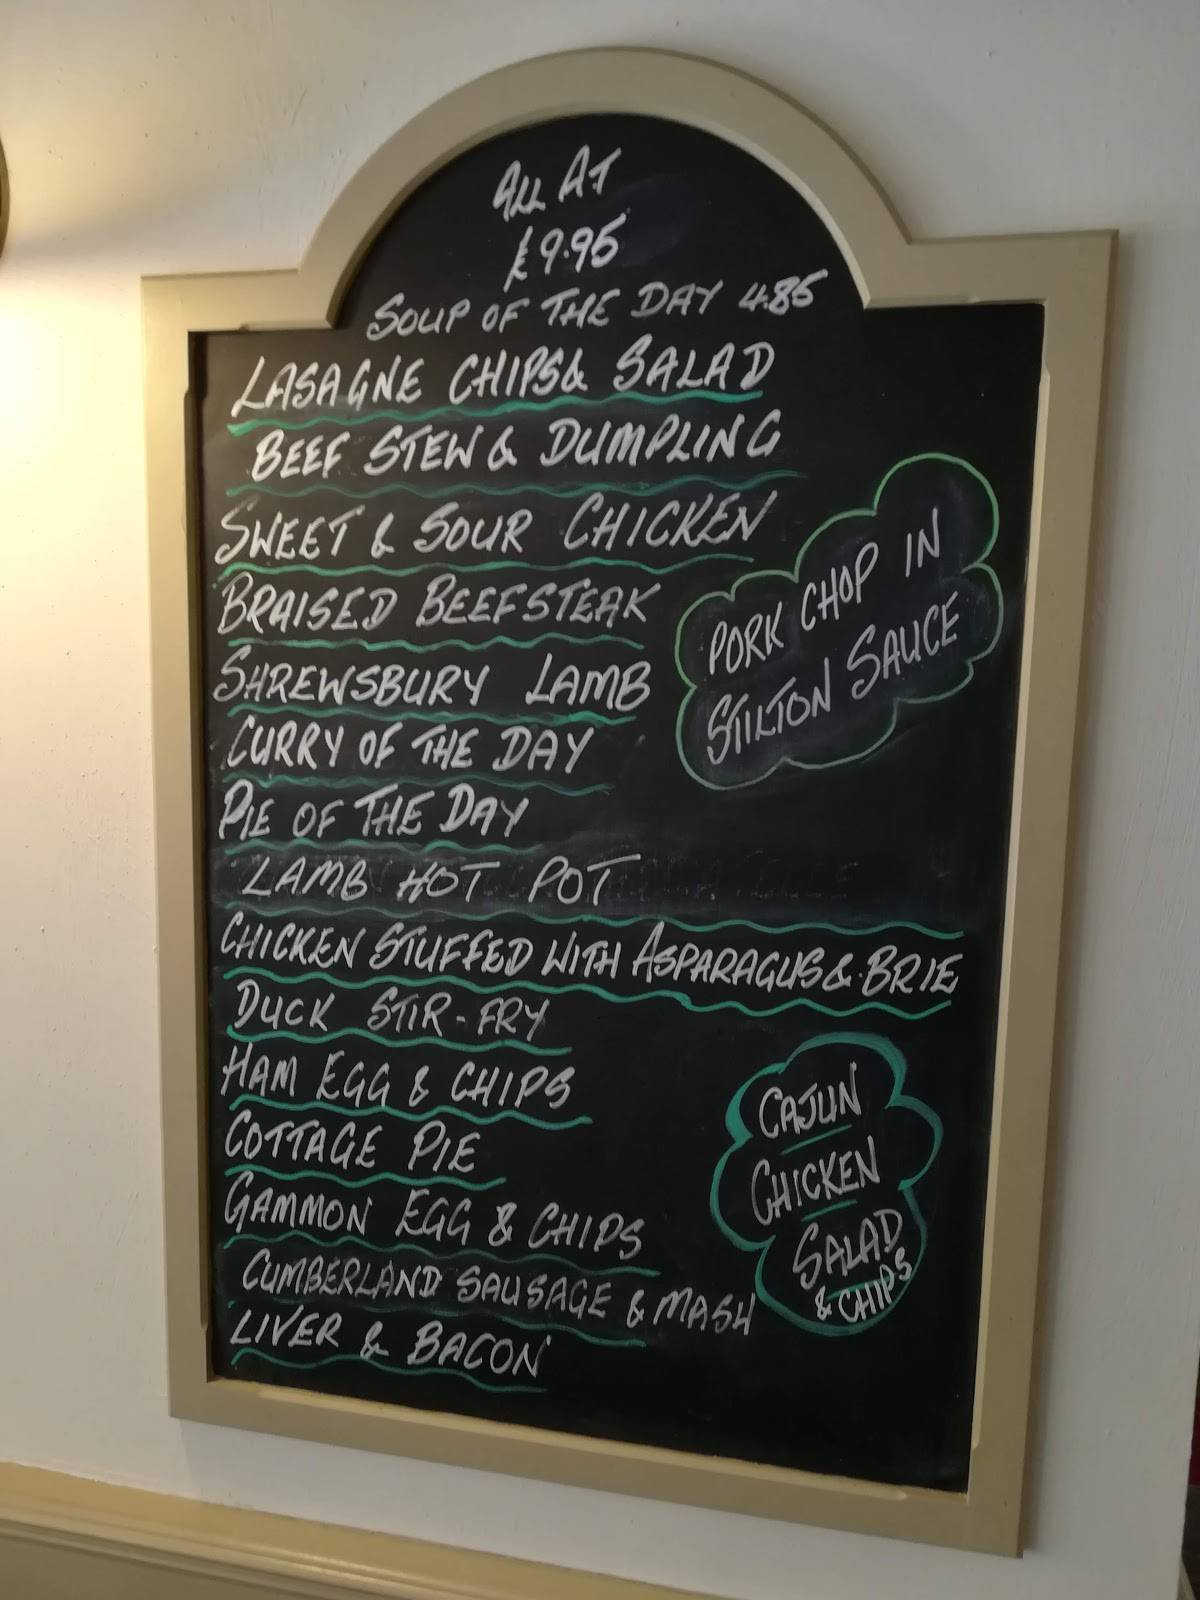 ALL AT
£9.95
SOUP OF THE DAY 4.85
LASAGNE CHIPS & SALAD
BEEF STEW & DUMPLING
SWEET & SOUR CHICKEN
BRAISED BEEFSTEAK
SHREWSBURY LAMB
CURRY OF THE DAY
PIE OF THE DAY
LAMB HOT POT
CHICKEN STUFFED WITH ASPARAGUS & BRIE
DUCK STIR-FRY
HAM EGG & CHIPS
COTTAGE PIE
GAMMON EGG & CHIPS
CUMBERLAND SAUSAGE & MASH
LIVER & BACON
PORK CHOP IN
STILTON SAUCE
CAJUN
CHICKEN
SALAD
& CHIPS